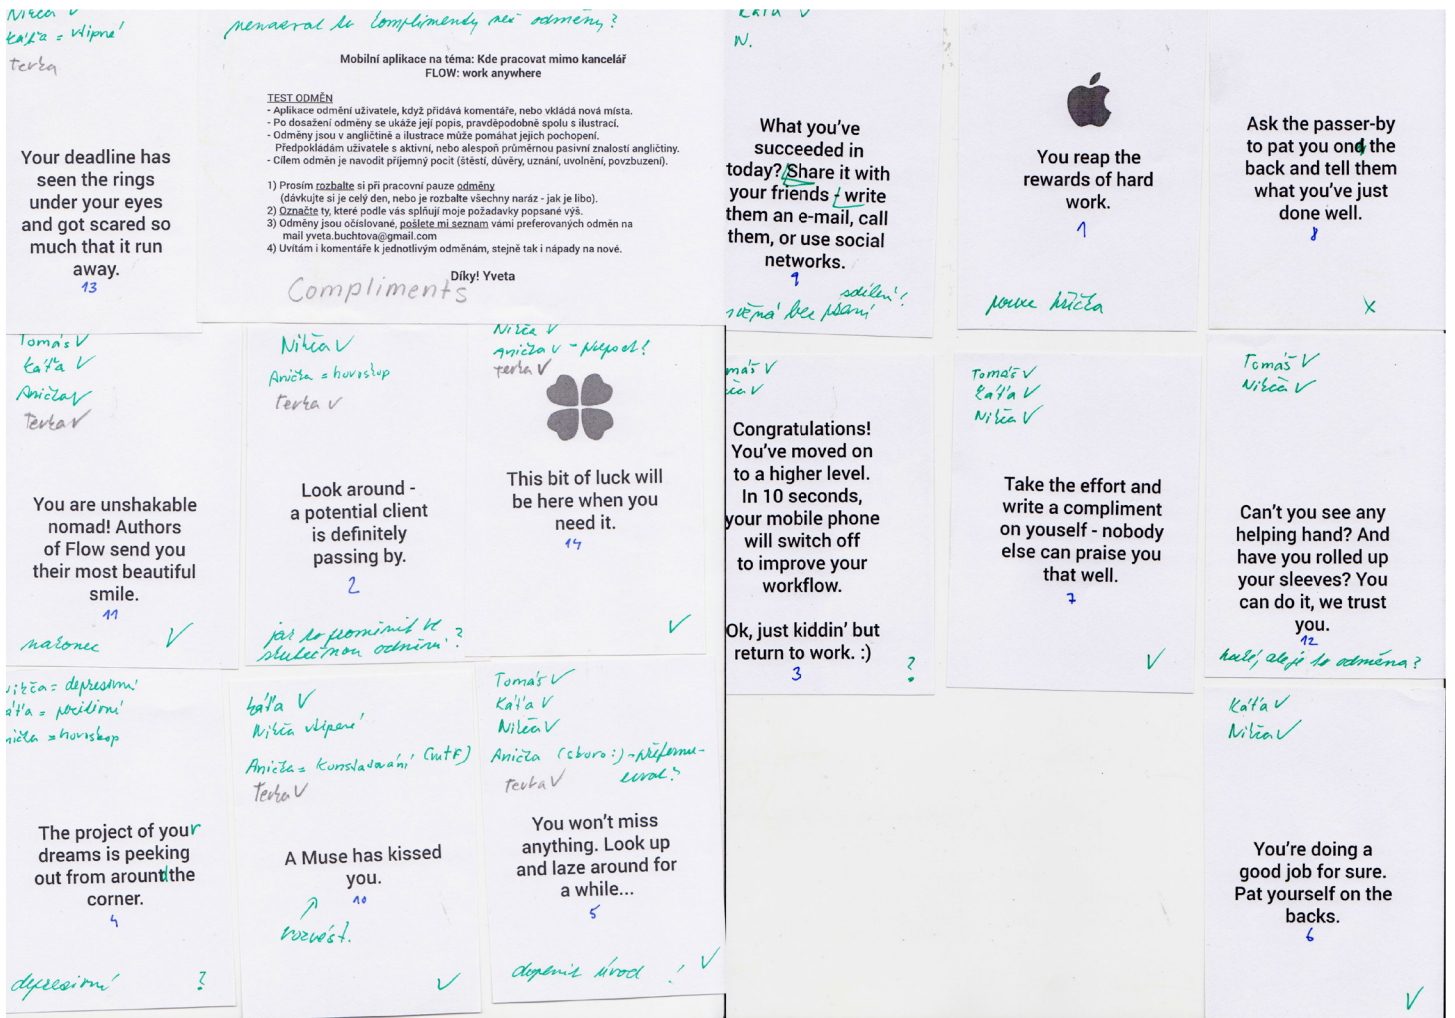 Nikča V
Káťa = vtipné
Terka
Your deadline has
seen the rings
under your eyes
and got scared so
much that it run
away.
13
nenazvat to Complimenty než odměny?
Mobilní aplikace na téma: Kde pracovat mimo kancelář
FLOW: work anywhere
TEST ODMĚN
- Aplikace odmění uživatele, když přidává komentáře, nebo vkládá nová místa.
- Po dosažení odměny se ukáže její popis, pravděpodobně spolu s ilustrací.
- Odměny jsou v angličtině a ilustrace může pomáhat jejich pochopení.
Předpokládám uživatele s aktivní, nebo alespoň průměrnou pasivní znalostí angličtiny.
- Cílem odměn je navodit příjemný pocit (štěstí, důvěry, uznání, uvolnění, povzbuzení).
1) Prosím rozbalte si při pracovní pauze odměny
(dávkujte si je celý den, nebo je rozbalte všechny naráz - jak je libo).
2) Označte ty, které podle vás splňují moje požadavky popsané výš.
3) Odměny jsou očíslované, pošlete mi seznam vámi preferovaných odměn na
mail yveta.buchtova@gmail.com
4) Uvítám i komentáře k jednotlivým odměnám, stejně tak i nápady na nové.
Díky! Yveta
Compliments
Káťa V
N.
What you've
succeeded in
today? Share it with
your friends - write
them an e-mail, call
them, or use social
networks.
9
sdílení?
bez psaní
You reap the
rewards of hard
work.
1
pouze hříčka
Ask the passer-by
to pat you ond the
back and tell them
what you've just
done well.
8
X
Tomáš V
Káťa V
Anička V
Terka V
You are unshakable
nomad! Authors
of Flow send you
their most beautiful
smile.
11
nakonec V
Nikča V
Anička = horoskop
Terka V
Look around -
a potential client
is definitely
passing by.
2
jak to proměnit ve
skutečnou odměnu?
Nikča V
Anička V
Terka V
This bit of luck will
be here when you
need it.
14
V
Tomáš V
Nikča V
Congratulations!
You've moved on
to a higher level.
In 10 seconds,
your mobile phone
will switch off
to improve your
workflow.
Ok, just kiddin' but
return to work. :)
3
?
Tomáš V
Káťa V
Nikča V
Take the effort and
write a compliment
on youself - nobody
else can praise you
that well.
7
V
Tomáš V
Nikča V
Can't you see any
helping hand? And
have you rolled up
your sleeves? You
can do it, we trust
you.
12
ale je to odměna?
Nikča = depresivní
Káťa = pozitivní
Anička = horoskop
The project of your
dreams is peeking
out from around the
corner.
4
depresivní ?
Káťa V
Nikča vtipné
Anička = konstatování (WTF)
Terka V
A Muse has kissed
you.
10
rozvést.
V
Tomáš V
Káťa V
Nikča V
Anička (skoro :) - přeformu-
lovat?
Terka V
You won't miss
anything. Look up
and laze around for
a while...
5
doplnit úvod ! V
Káťa V
Nikča V
You're doing a
good job for sure.
Pat yourself on the
backs.
6
V